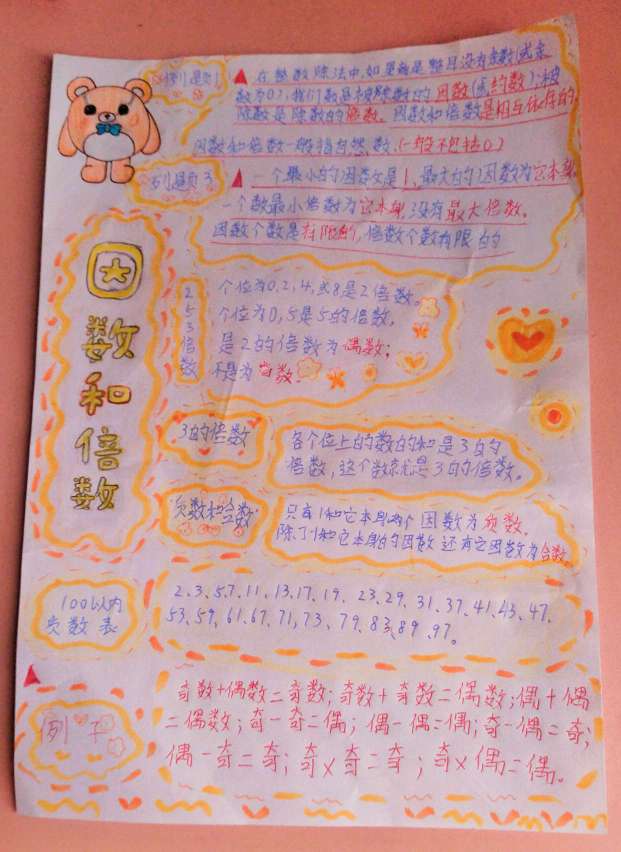 例题1
▲在整数除法中,如果商是整且没有余数(或余
数为0),我们数是被除数的因数(或约数),被
除数是除数的倍数。因数和倍数是相与依存的,
因数和倍数一般指自然数,(一般不包括0)
例题3
▲一个最小的因数是1,最大的因数为它本身,
一个数最小倍数为它本身,没有最大倍数。
因数个数是有限的,倍数个数有限的
因数和倍数
253倍数
个位为0.2,4,或8是2倍数。
个位为0,5是5的倍数,
是2的倍数为偶数;
不是为奇数.
3的倍数
各个位上的数的和是3的
倍数,这个数就是3的倍数。
质数和合数
只有1和它本身两个因数为质数.
除了1和它本身的因数还有它因数为合数。
100以内
质数表
2.3.5.7.11.13.17.19. 23.29.31.37.41.43.47.
53.59,61.67.71,73、79.83、89、97。
例子
奇数+偶数=奇数;奇数+奇数=偶数;偶+偶
=偶数;奇-奇=偶;偶-偶=偶;奇-偶=奇;
偶-奇=奇;奇×奇=奇;奇×偶=偶。